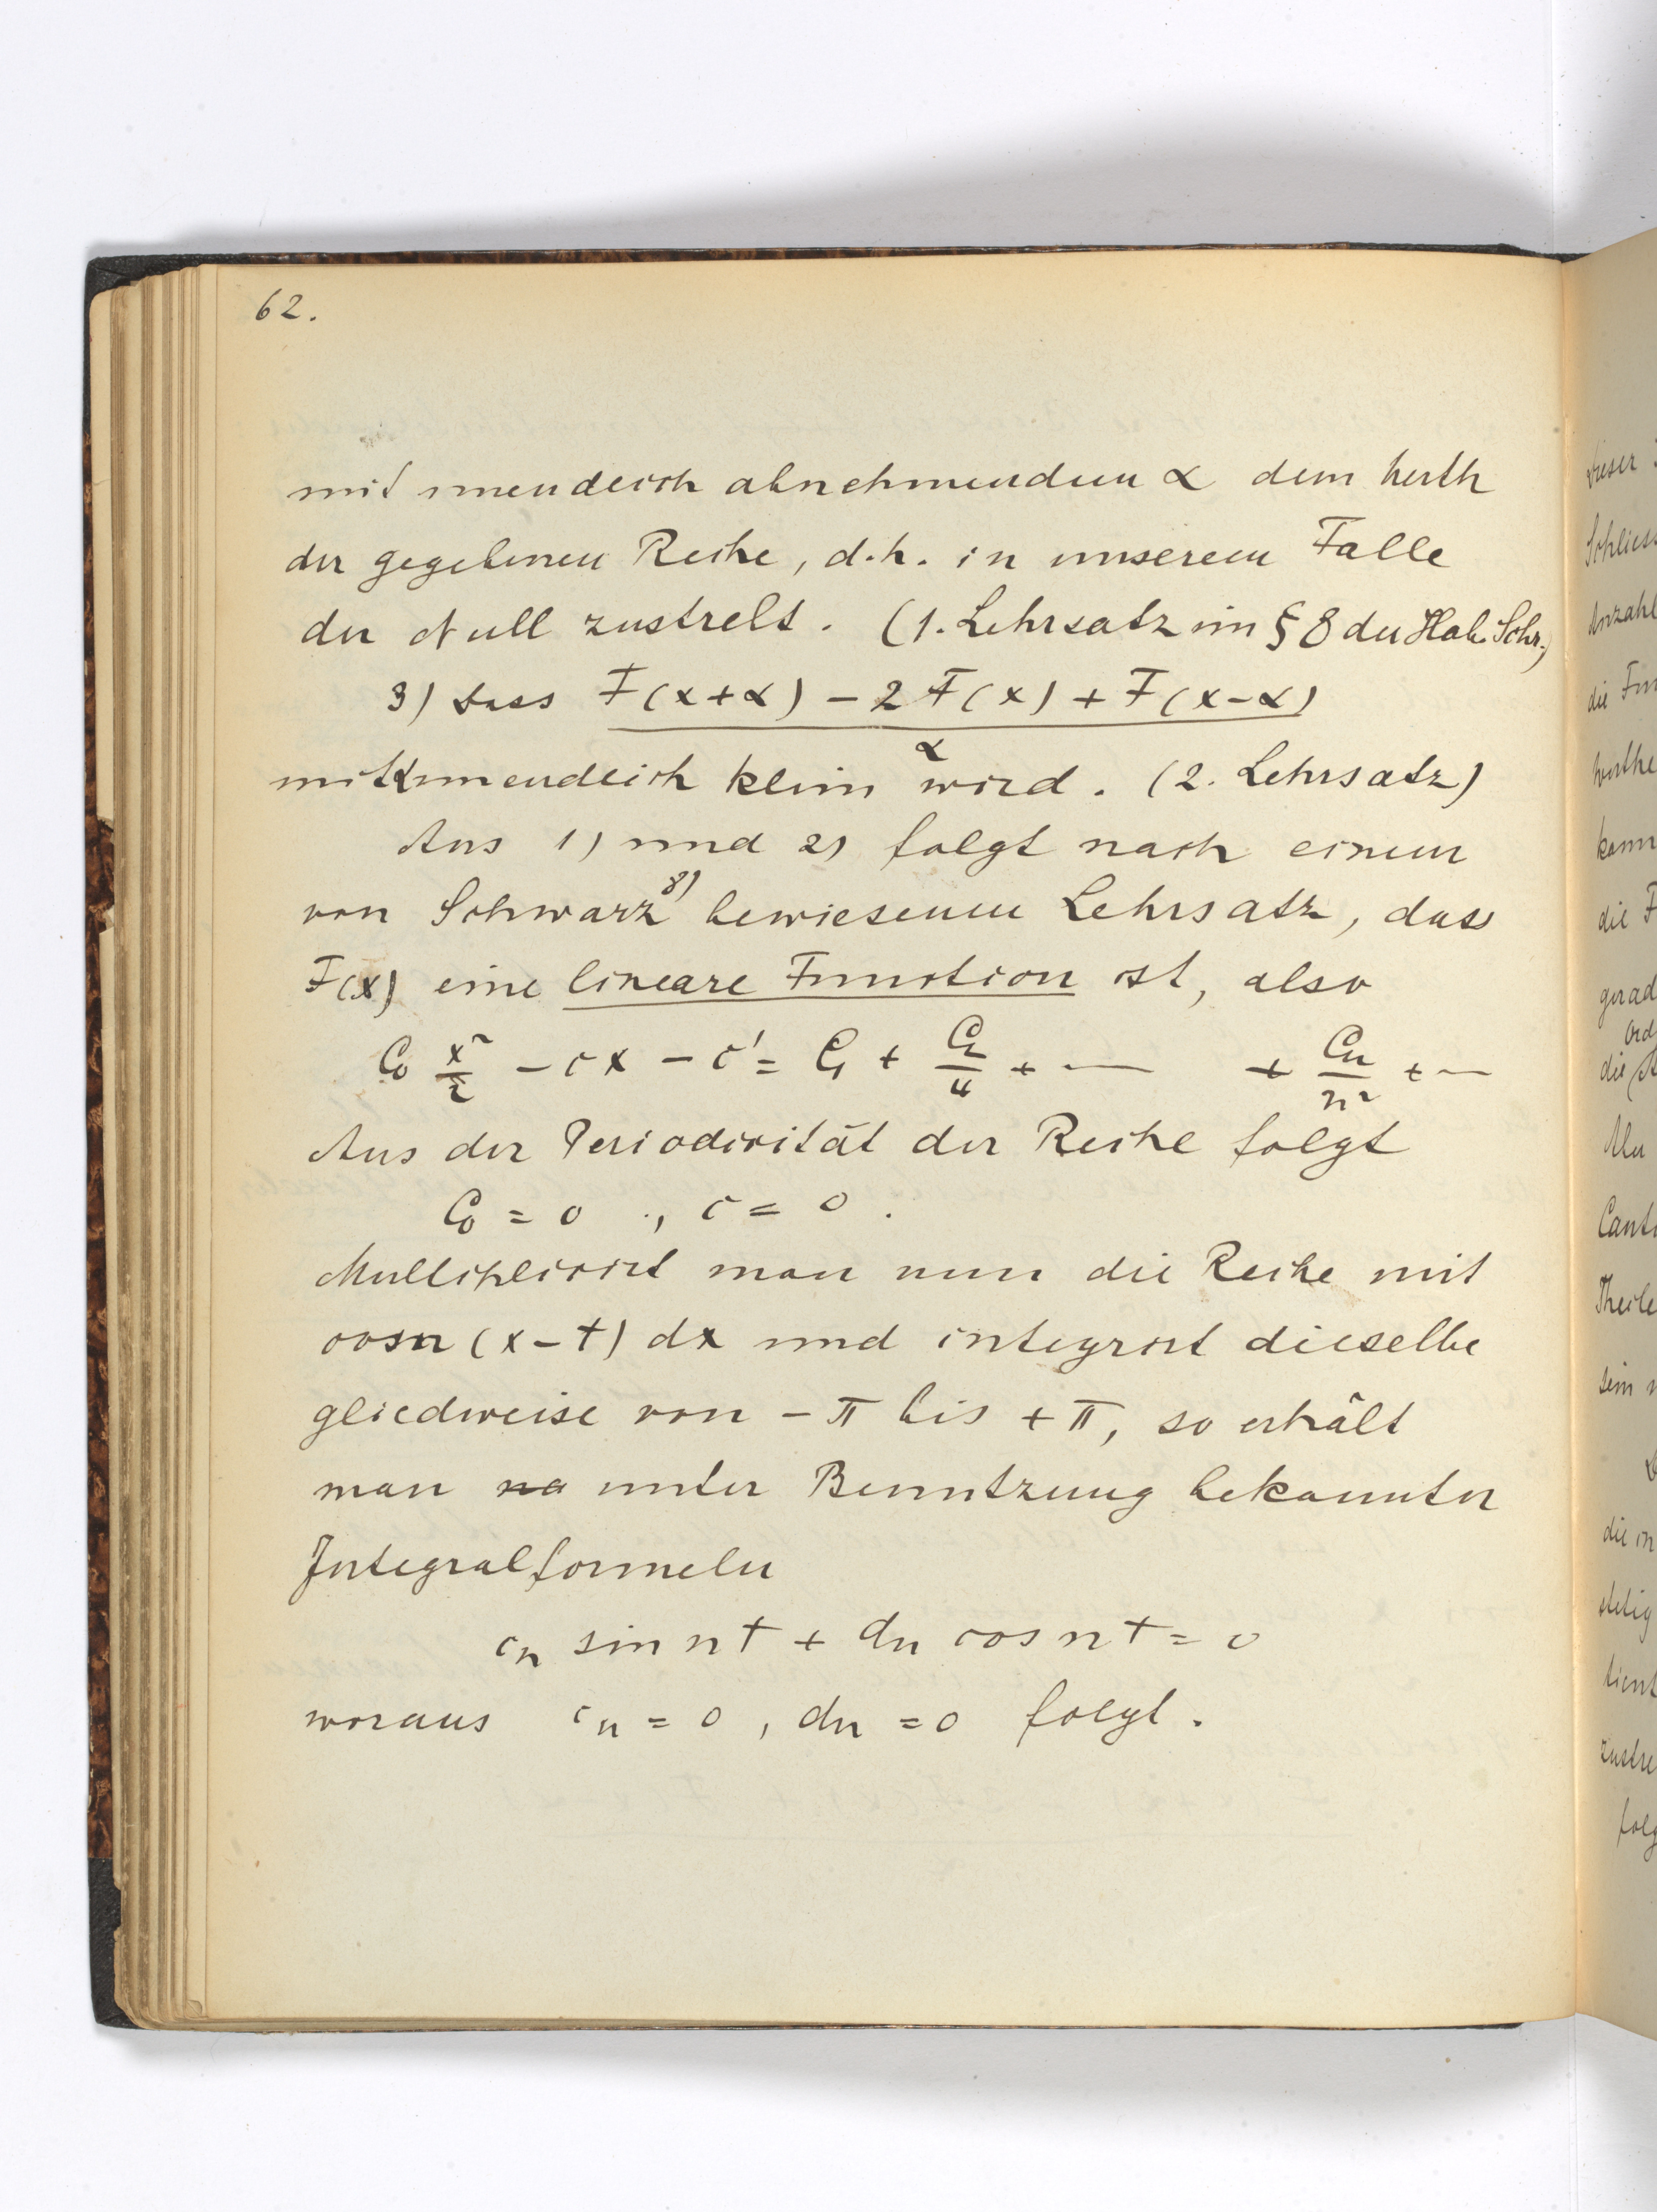 62.
mit unendlich abnehmendem α dem Werth
der gegebenen Reihe, d.h. in unserem Falle
der Null zustrebt. (1. Lehrsatz im § 8 der Hab. Schr.)
3) dass F(x+α) – 2 F(x) + F(x–α)
α
mit α unendlich klein wird. (2. Lehrsatz)
Aus 1) und 2) folgt nach einem
von Schwarz 8) bewiesenen Lehrsatz, dass
F(x) eine lineare Function ist, also
C₀ x²/2 – cx – c' = C₁ + C₂/4 + — + Cn/n² + —
Aus der Periodicität der Reihe folgt
C₀ = 0 , c = 0 .
Multiplicirt man nun die Reihe mit
cos n (x–t) dx und integrirt dieselbe
gliedweise von – π bis + π, so erhält
man na unter Benutzung bekannter
Integralformeln
cn sin nt + dn cos nt = 0
woraus cn = 0 , dn = 0 folgt.
dieser
Schliess
Anzahl
die Fun
Werthe
kann
die F
gerad
Ord
die
Theile
sein
die in
stetig
zustre
folg